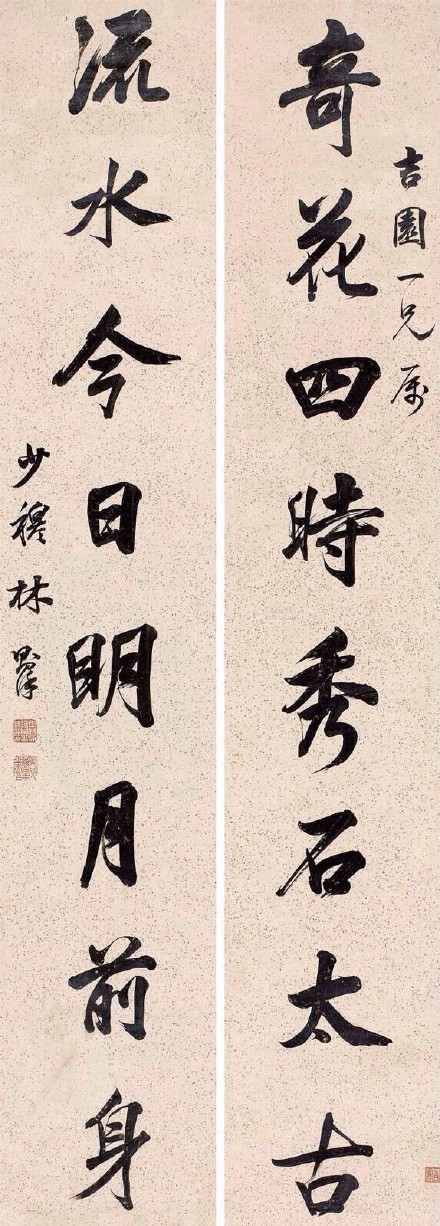 吉園一兄属
奇花四時秀石太古
流水今日明月前身
少穆林則徐